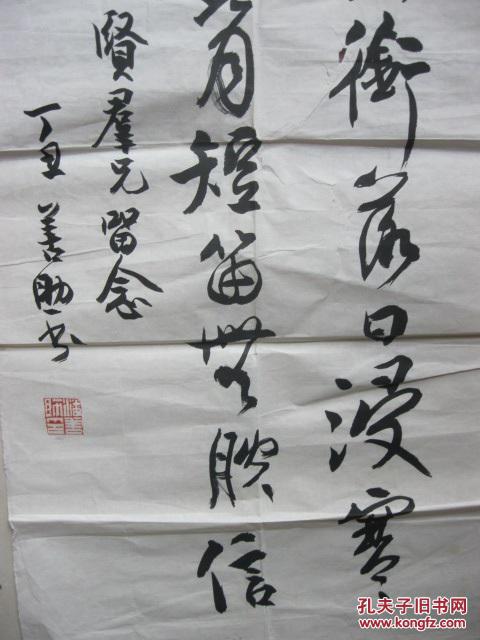 銜落日浸寒
背短笛無腔信
賢羣兄留念
丁丑 善助书
孔夫子旧书网
www.kongfz.com